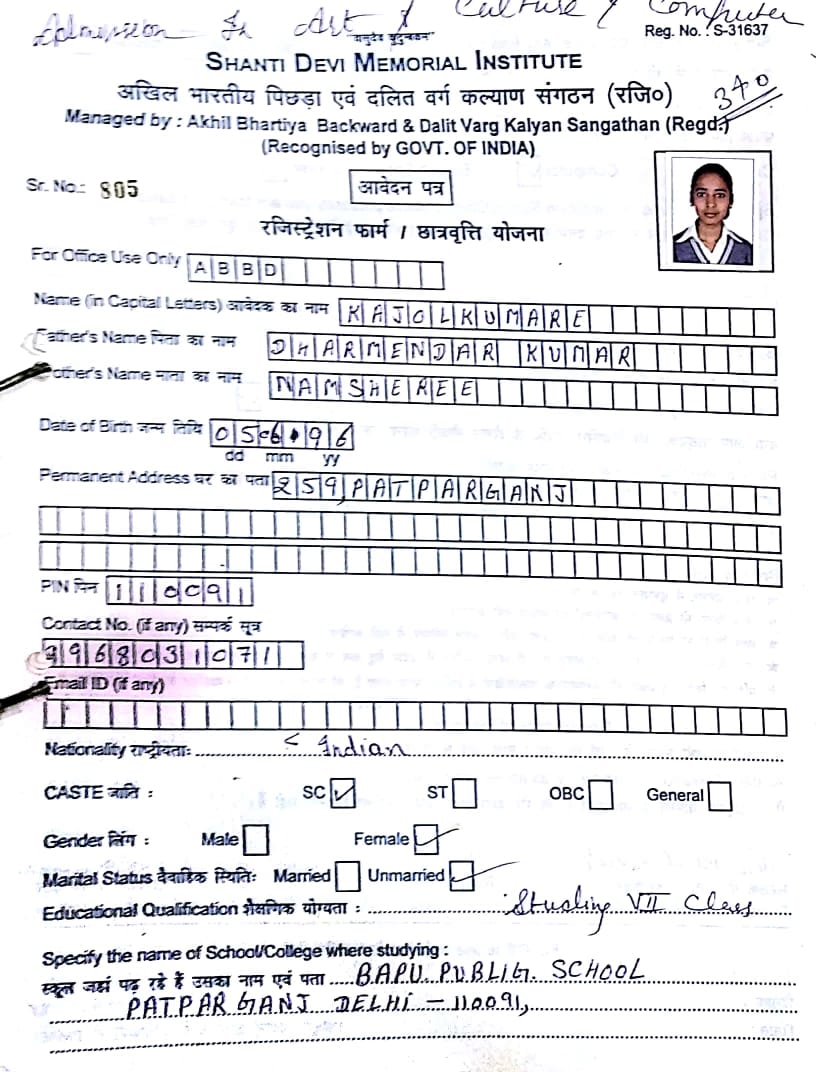 Admission In Art & Culture & Computer
"वासुदेव कुटुम्बकम"
Reg. No. : S-31637
SHANTI DEVI MEMORIAL INSTITUTE
अखिल भारतीय पिछड़ा एवं दलित वर्ग कल्याण संगठन (रजि०)
340
Managed by : Akhil Bhartiya Backward & Dalit Varg Kalyan Sangathan (Regd.)
(Recognised by GOVT. OF INDIA)
Sr. No.: 805
आवेदन पत्र
रजिस्ट्रेशन फार्म / छात्रवृत्ति योजना
For Office Use Only ABBD
Name (in Capital Letters) आवेदक का नाम KAJOLKUMARE
Father's Name पिता का नाम DHARMENDAR KUMAR
other's Name माता का नाम NAMSHEREE
Date of Birth जन्म तिथि 05 96
dd mm yy
Permanent Address घर का पता 259, PATPARGANJ
PIN पिन 110091
Contact No. (if any) सम्पर्क सूत्र
9968031071
Email ID (if any)
Nationality राष्ट्रीयताः Indian
CASTE जाति : SC ST OBC General
Gender लिंग : Male Female
Marital Status वैवाहिक स्थितिः Married Unmarried
Educational Qualification शैक्षणिक योग्यता : Studing VII Class
Specify the name of School/College where studying :
स्कूल जहां पढ़ रहे हैं उसका नाम एवं पता BAPU. PUBLIG. SCHOOL
PATPAR GANJ DELHI - 110091,